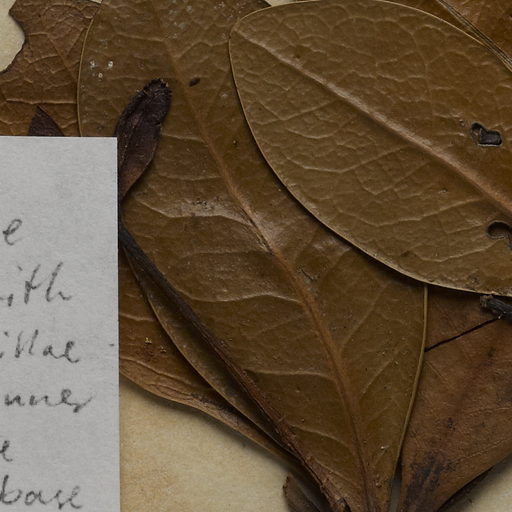 e
with
illae
inner
e
base